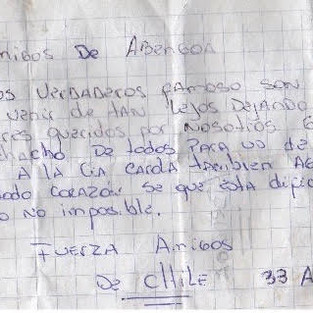 migos De Abengoa
os Verdaderos famoso son
venir de tan lejos dejando
res queridos por nosotros
hacho de todos para uo de
A la Cia Carda tambien Ag
odo corazón se que esta dipic
o no imposible.
Fuerza Amigos
De chile 33 A